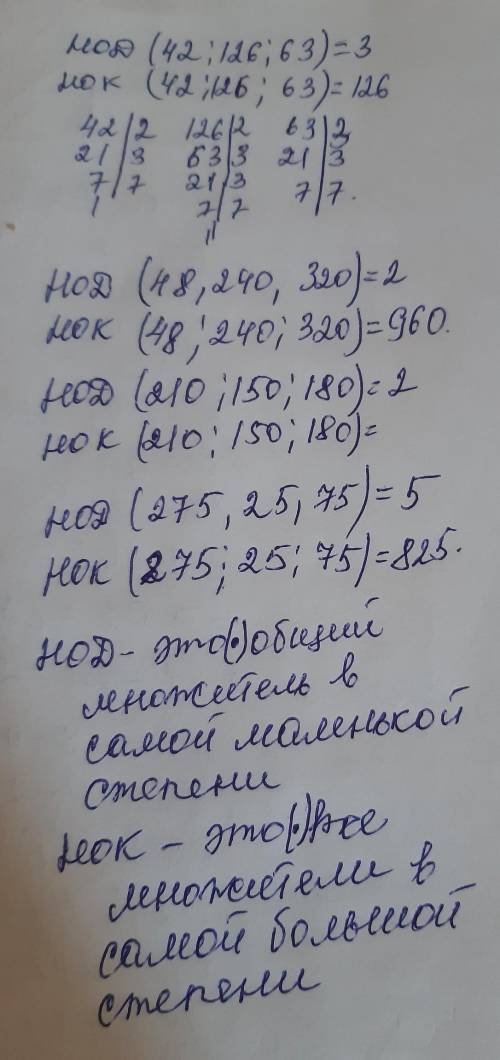 НОД (42; 126; 63) = 3
НОК (42; 126; 63) = 126
42|2 126|2 63|3
21|3 63|3 21|3
7|7 21|3 7|7.
1 7|7
1
НОД (48, 240, 320) = 2
НОК (48; 240; 320) = 960.
НОД (210; 150; 180) = 2
НОК (210; 150; 180) =
НОД (275, 25, 75) = 5
НОК (275; 25; 75) = 825.
НОД - это (·) общий
множитель в
самой маленькой
степени
НОК - это (·) все
множители в
самой большой
степени